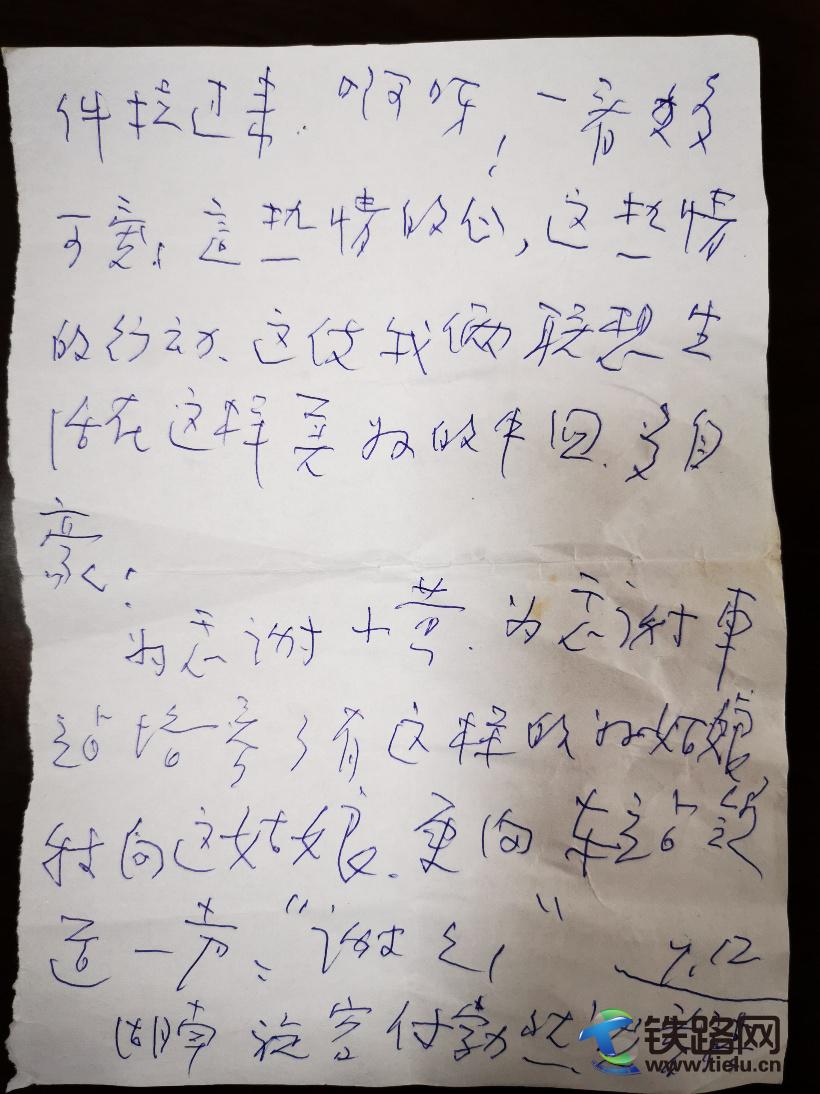 件接过来.啊呀,一看更多
可亮,这热情的心,这热情
的行动、这使我俩联想生
活在这样美好的中国、多自
豪:
为感谢小黄.为感谢車
站培养了有这样的好姑娘
我向这姑娘、更向车站领
道一声:"谢之,"
7.12
湖南旅客付
铁路网
www.tielu.cn